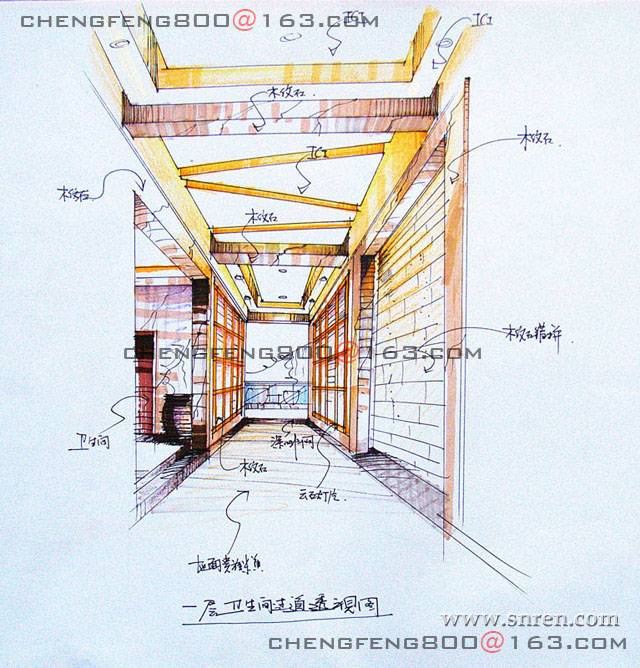 CHENGFENG800@163.COM
ICI
ICI
木纹石
木纹石
ICI
木纹石
木纹石
木纹石错拼
CHENGFENG800@163.COM
卫生间
木纹石
云石灯片
一层卫生间过道透视图
www.snren.com
CHENGFENG800@163.COM